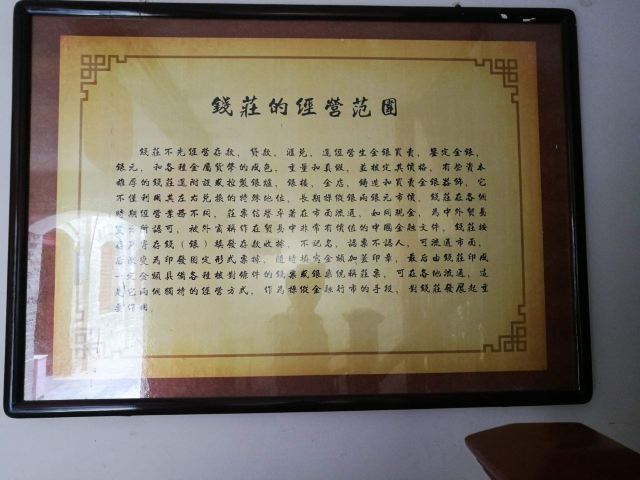 錢莊的經營范圍
錢莊不先經營存款、貸款、滙兑，還經營生金銀買賣，鑒定金銀、
銀元、和各種金屬貨幣的成色、重量和真假，並核定其價格，有些資本
雄厚的錢莊還附設或控製銀爐、銀樓、金店、鑄造和買賣金銀器飾，它
不僅利用其左右兑換的特殊地位，長期操縱銀兩銀元市價，錢莊在各個
時期經營業務不同，莊票信譽卓著在市面流通，如同現金，為中外貿易
所認可，被外商稱作在貿易中非常有價值的中國金融文件，錢莊按
存 寄存錢（銀）填發存款收據，不記名，認票不認人，可流通市面，
后 變為印發固定形式票據，隨時填寫金額加蓋印章，最后由錢莊印成
一定金額具備各種核對條件的錢票或銀票統稱莊票，可在各地流通，這
是它两個獨特的經營方式，作為操縱金融行市的手段，對錢莊發展起重
要作用。